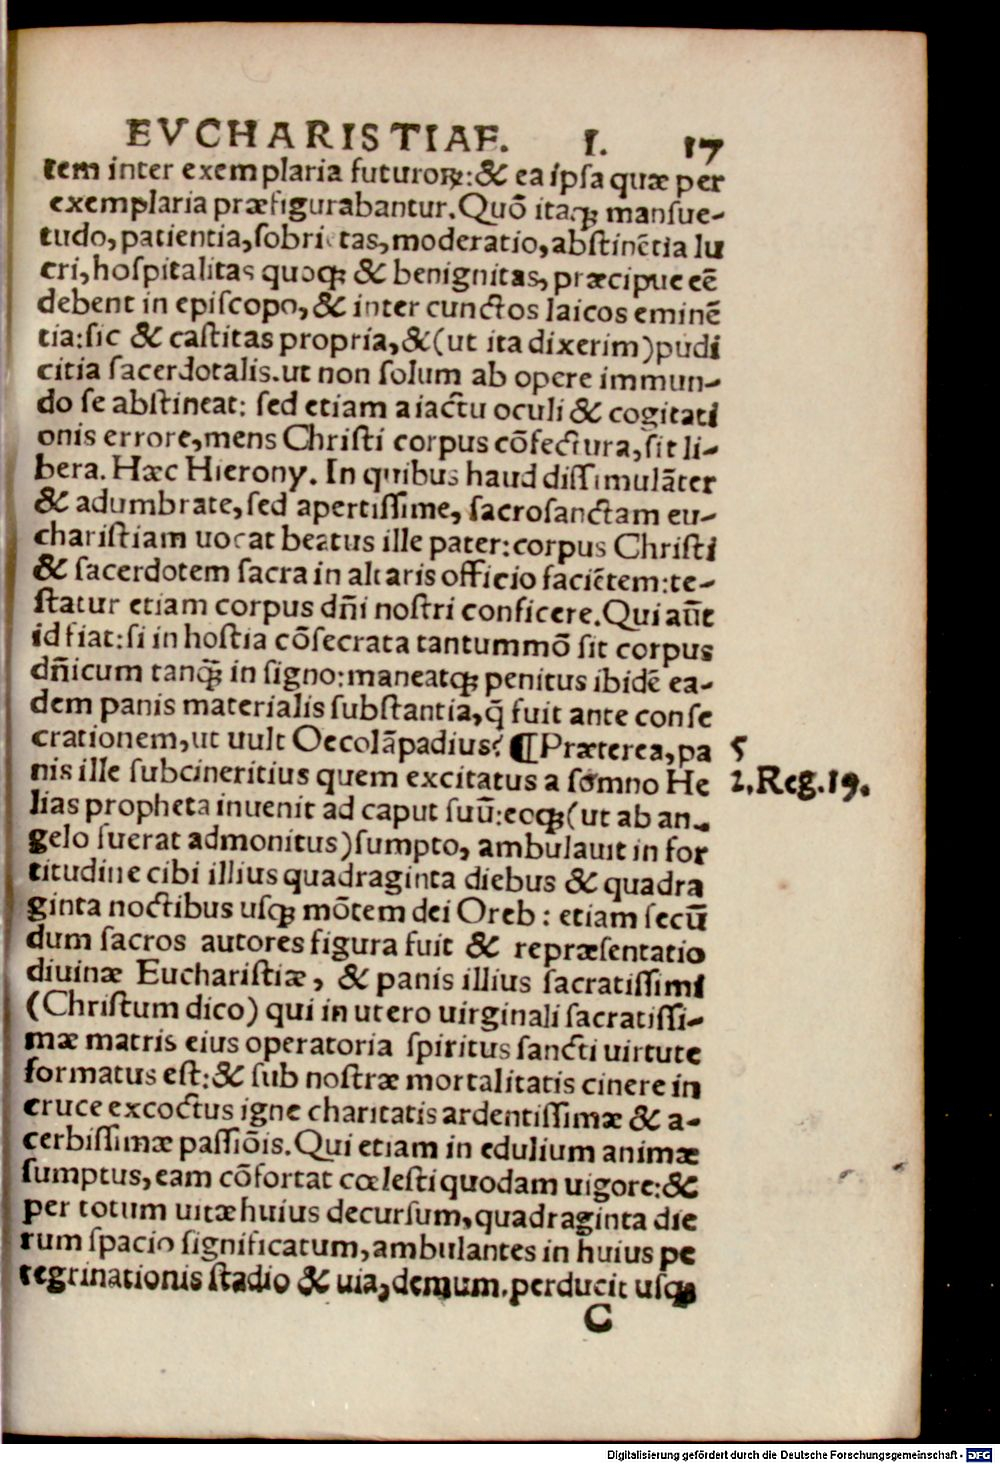 EVCHARISTIAE. I. 17
tem inter exemplaria futuroꝝ:& ea ipſa quæ per
exemplaria præfigurabantur.Quõ itaqꝫ manſue-
tudo,patientia,ſobrietas,moderatio,abſtinẽtia lu
cri,hoſpitalitas quoqꝫ & benignitas,præcipue eẽ
debent in epiſcopo,& inter cunctos laicos eminẽ
tia:ſic & caſtitas propria,&(ut ita dixerim)pudi
citia ſacerdotalis.ut non ſolum ab opere immun-
do ſe abſtineat: ſed etiam a iactu oculi & cogitati
onis errore,mens Chriſti corpus cõfectura,ſit li-
bera. Hæc Hierony. In quibus haud diſſimulãter
& adumbrate,ſed apertiſſime, ſacroſanctam eu-
chariſtiam uocat beatus ille pater:corpus Chriſti
& ſacerdotem ſacra in altaris officio faciẽtem:te-
ſtatur etiam corpus dñi noſtri conficere.Qui aũt
id fiat:ſi in hoſtia cõſecrata tantummõ ſit corpus
dñicum tanqꝫ̃ in ſigno:maneatqꝫ penitus ibidẽ ea-
dem panis materialis ſubſtantia,q̃ fuit ante conſe
crationem,ut uult Oecolãpadius? ¶Præterea,pa 5
nis ille ſubcineritius quem excitatus a ſomno He 2.Reg.19.
lias propheta inuenit ad caput ſuũ:eoqꝫ(ut ab an-
gelo fuerat admonitus)ſumpto, ambulauit in for
titudine cibi illius quadraginta diebus & quadra
ginta noctibus uſqꝫ mõtem dei Oreb: etiam ſecũ
dum ſacros autores figura fuit & repræſentatio
diuinæ Euchariſtiæ, & panis illius ſacratiſſimi
(Chriſtum dico) qui in utero uirginali ſacratiſſi-
mæ matris eius operatoria ſpiritus ſancti uirtute
formatus eſt:& ſub noſtræ mortalitatis cinere in
cruce excoctus igne charitatis ardentiſſimæ & a-
cerbiſſimæ paſſiõis.Qui etiam in edulium animæ
ſumptus,eam cõfortat cœleſti quodam uigore:&
per totum uitæ huius decurſum,quadraginta die
rum ſpacio ſignificatum,ambulantes in huius pe
regrinationis ſtadio & uia,demum.perducit uſqꝫ
C
Digitalisierung gefördert durch die Deutsche Forschungsgemeinschaft - DFG